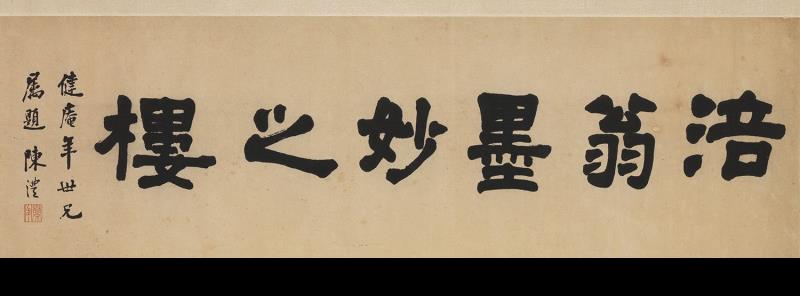 涪翁墨妙之樓
健庵年世兄
屬題陳澧